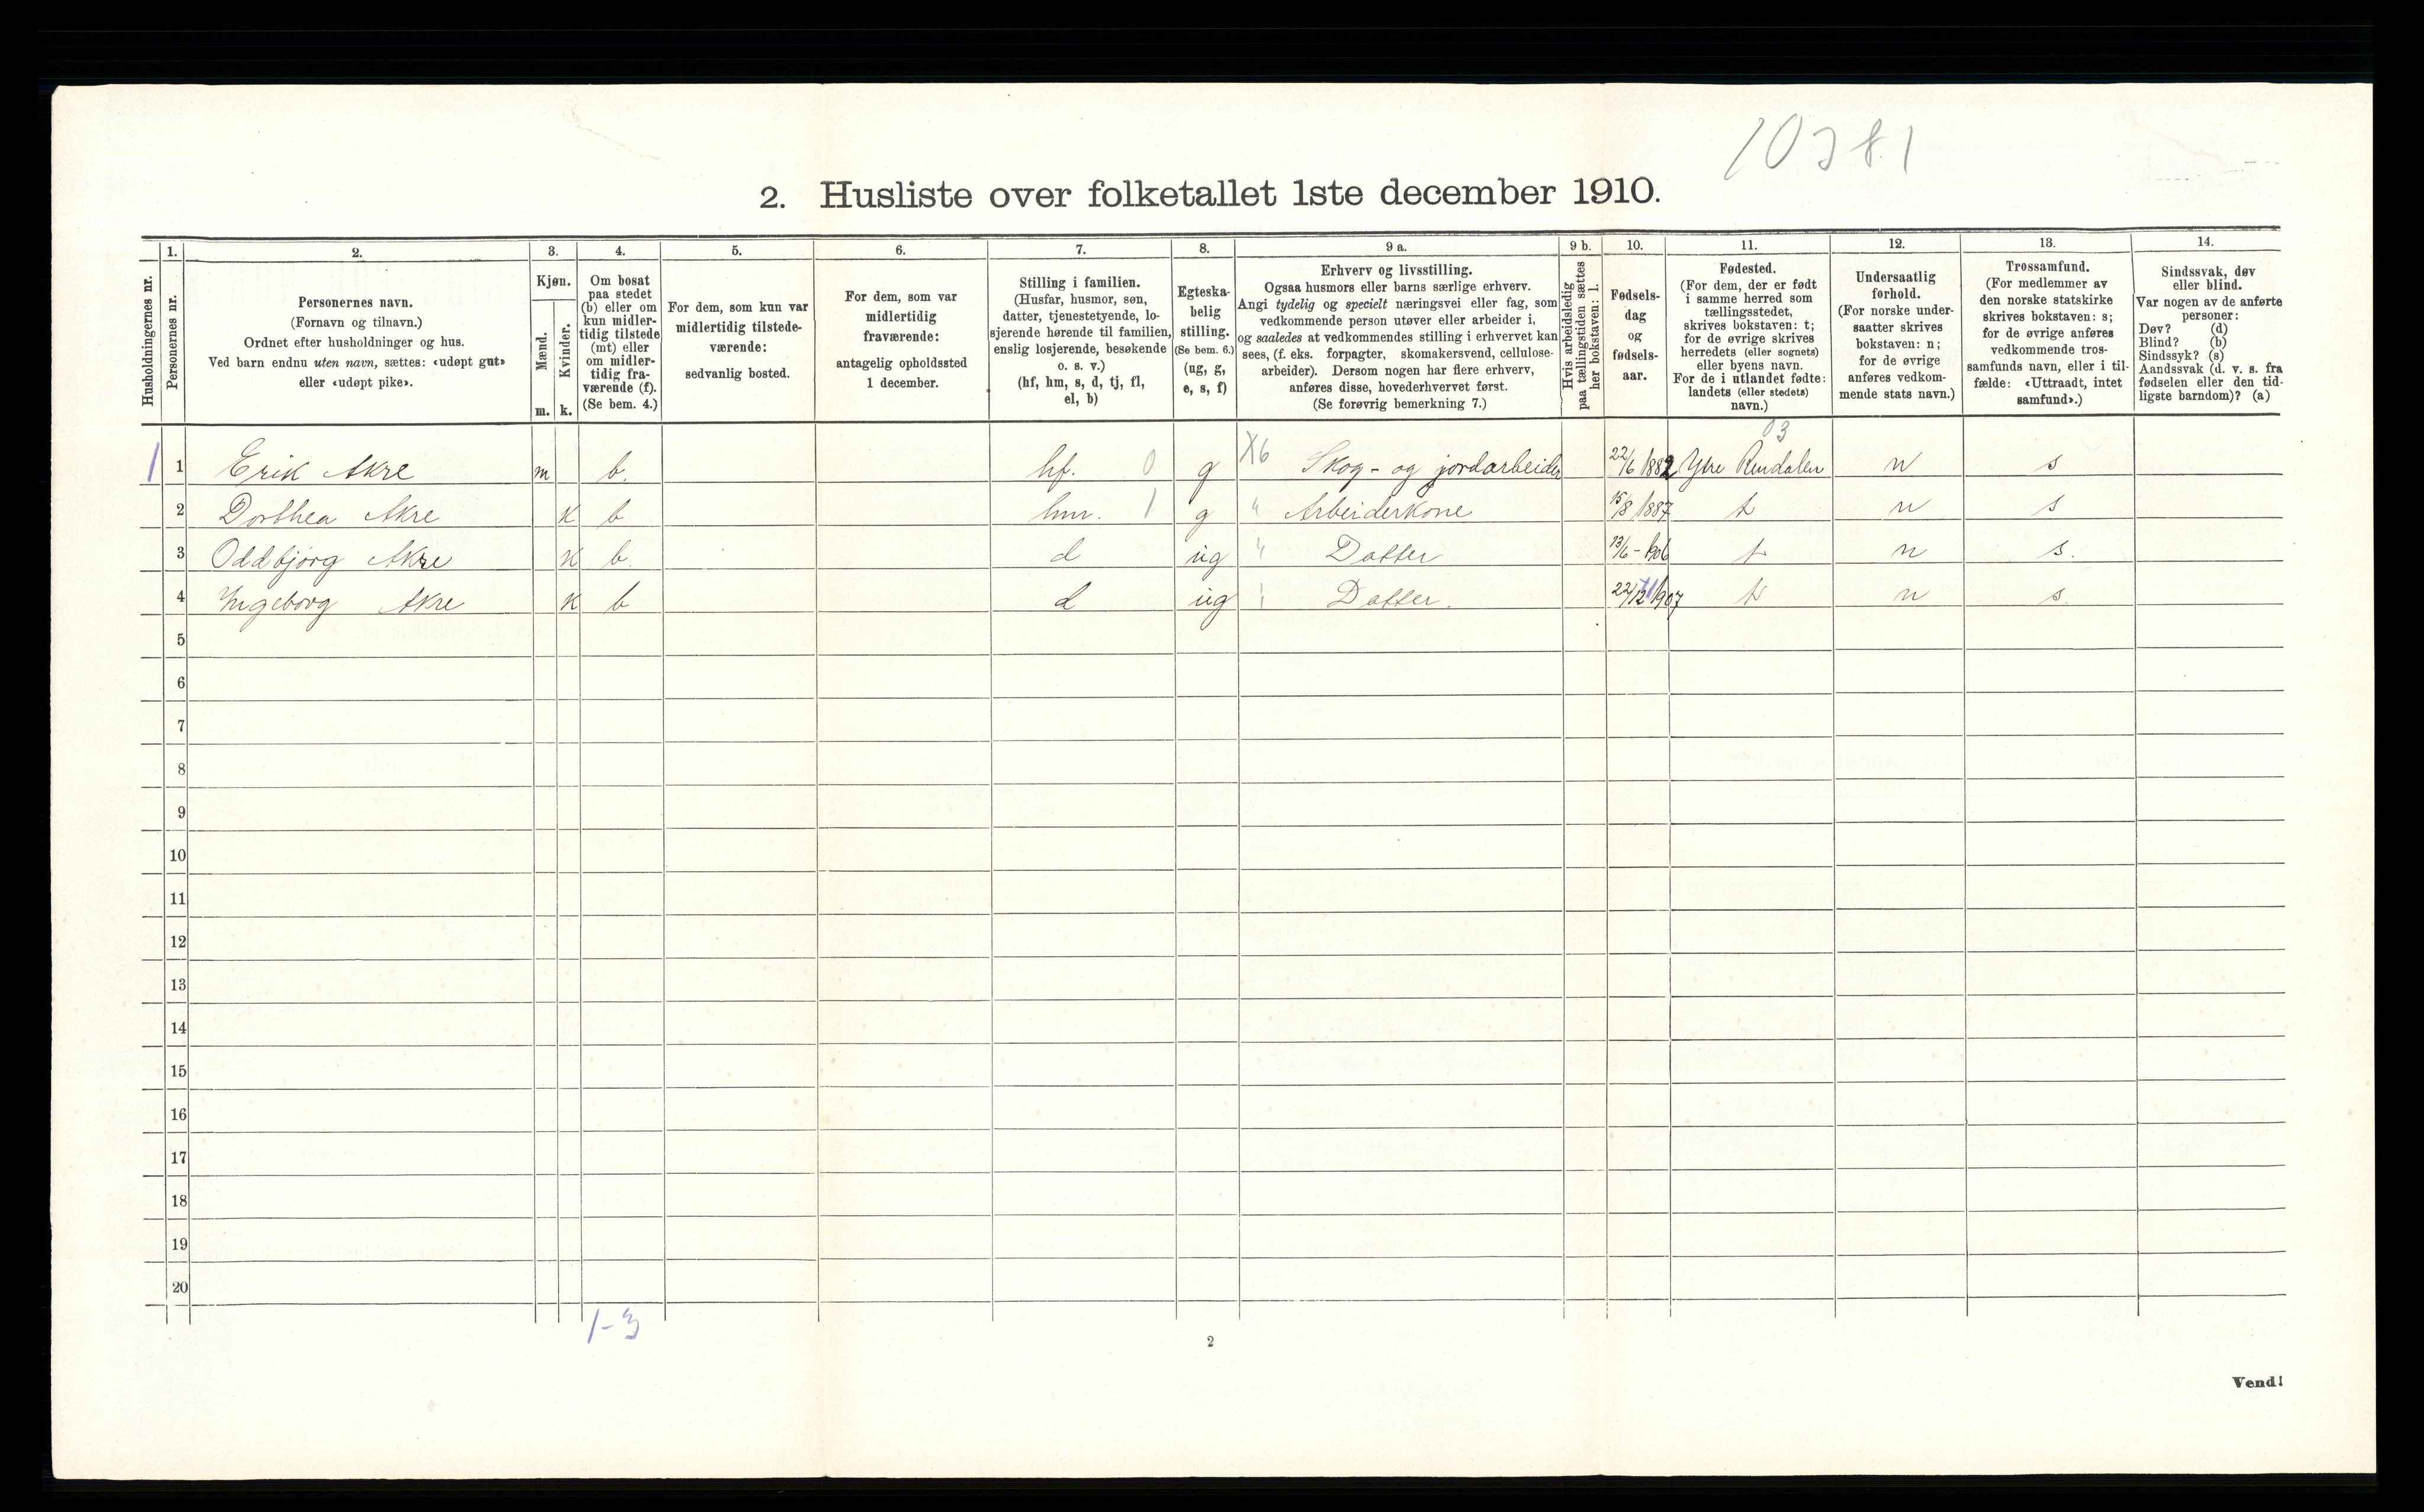 10381
2. Husliste over folketallet 1ste december 1910.
Husholdningernes nr.
1.
Personernes nr.
2.
Personernes navn.
(Fornavn og tilnavn.)
Ordnet efter husholdninger og hus.
Ved barn endnu uten navn, sættes: «udøpt gut»
eller «udøpt pike».
3.
Kjøn.
Mænd.
Kvinder.
m. k.
4.
Om bosat
paa stedet
(b) eller om
kun midler-
tidig tilstede
(mt) eller
om midler-
tidig fra-
værende (f).
(Se bem. 4.)
5.
For dem, som kun var
midlertidig tilstede-
værende:
sedvanlig bosted.
6.
For dem, som var
midlertidig
fraværende:
antagelig opholdssted
1 december.
7.
Stilling i familien.
(Husfar, husmor, søn,
datter, tjenestetyende, lo-
sjerende hørende til familien,
enslig losjerende, besøkende
o. s. v.)
(hf, hm, s, d, tj, fl,
el, b)
8.
Egteska-
belig
stilling.
(Se bem. 6.)
(ug, g,
e, s, f)
9 a.
Erhverv og livsstilling.
Ogsaa husmors eller barns særlige erhverv.
Angi tydelig og specielt næringsvei eller fag, som
vedkommende person utøver eller arbeider i,
og saaledes at vedkommendes stilling i erhvervet kan
sees, (f. eks. forpagter, skomakersvend, cellulose-
arbeider). Dersom nogen har flere erhverv,
anføres disse, hovederhvervet først.
(Se forøvrig bemerkning 7.)
9 b.
Hvis arbeidsledig
paa tællingstiden sættes
her bokstaven: l.
10.
Fødsels-
dag
og
fødsels-
aar.
11.
Fødested.
(For dem, der er født
i samme herred som
tællingsstedet,
skrives bokstaven: t;
for de øvrige skrives
herredets (eller sognets)
eller byens navn.
For de i utlandet fødte:
landets (eller stedets)
navn.)
12.
Undersaatlig
forhold.
(For norske under-
saatter skrives
bokstaven: n;
for de øvrige
anføres vedkom-
mende stats navn.)
13.
Trossamfund.
(For medlemmer av
den norske statskirke
skrives bokstaven: s;
for de øvrige anføres
vedkommende tros-
samfunds navn, eller i til-
fælde: «Uttraadt, intet
samfund».)
14.
Sindssvak, døv
eller blind.
Var nogen av de anførte
personer:
Døv? (d)
Blind? (b)
Sindssyk? (s)
Aandssvak (d. v. s. fra
fødselen eller den tid-
ligste barndom)? (a)
03
1 1 Erik Akre m b. hf. 0 g X6 Skog- og jordarbeider 22/6 1882 Ytre Rendalen n s
2 Dorthea Akre k b hm. 1 g " Arbeiderkone 15/8 1887 t n s
3 Oddbjørg Akre k b d ug " Datter 13/6 - 1906 t n s.
4 Ingeborg Akre k b d ug Datter. 22/12 1907 t n s.
5
6
7
8
9
10
11
12
13
14
15
16
17
18
19
20
1-3
2
Vend!